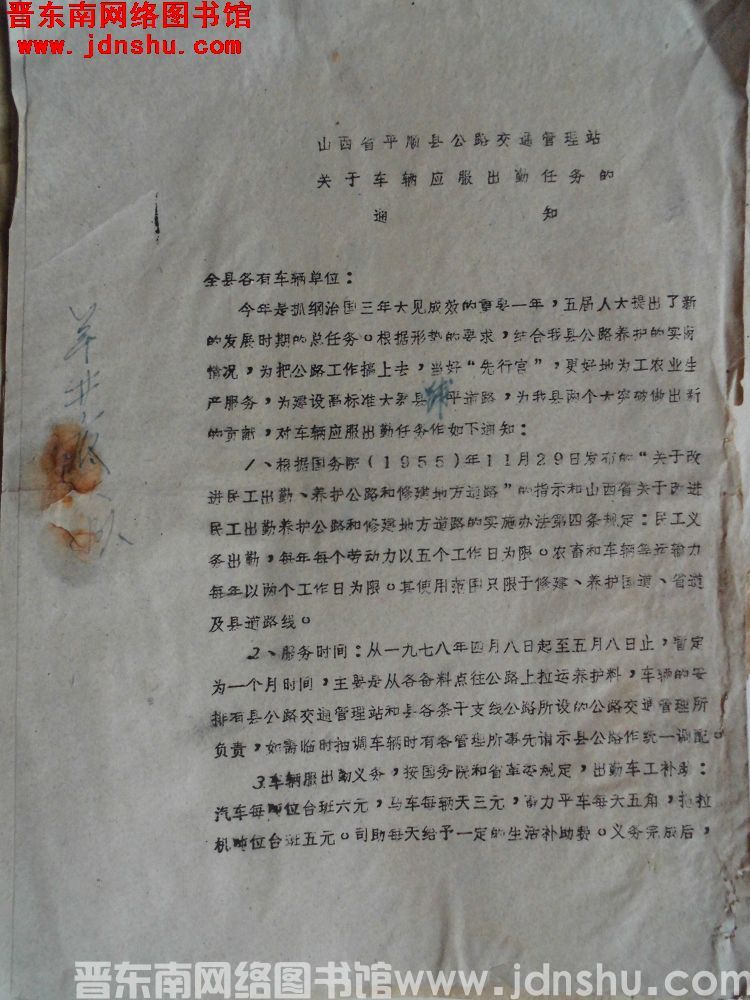 晋东南网络图书馆
www.jdnshu.com
山西省平顺县公路交通管理站
关于车辆应服出勤任务的
通 知
全县各有车辆单位：
今年是抓纲治国三年大见成效的重要一年，五届人大提出了新
的发展时期的总任务。根据形势的要求，结合我县公路养护的实际
情况，为把公路工作搞上去，当好“先行官”，更好地为工农业生
产服务，为建设高标准大寨县铺平道路，为我县两个大突破做出新
的贡献，对车辆应服出勤任务作如下通知：
1、根据国务院（1955）年11月29日发布的“关于改
进民工出勤、养护公路和修建地方道路”的指示和山西省关于改进
民工出勤养护公路和修建地方道路的实施办法第四条规定：民工义
务出勤，每年每个劳动力以五个工作日为限。农畜和车辆等运输力
每年以两个工作日为限。其使用范围只限于修建、养护国道、省道
及县道路线。
2、服务时间：从一九七八年四月八日起至五月八日止，暂定
为一个月时间，主要是从各备料点往公路上拉运养护料，车辆的安
排有县公路交通管理站和县各条干支线公路所设的公路交通管理所
负责，如需临时抽调车辆时有各管理所事先请示县公路作统一调配。
3.车辆服出勤义务，按国务院和省革委规定，出勤车工补助：
汽车每吨位台班六元，马车每辆天三元，畜力平车每大五角，拖拉
机吨位台班五元。司助每天给予一定的生活补助费。义务完成后，
羊井
队
晋东南网络图书馆www.jdnshu.com